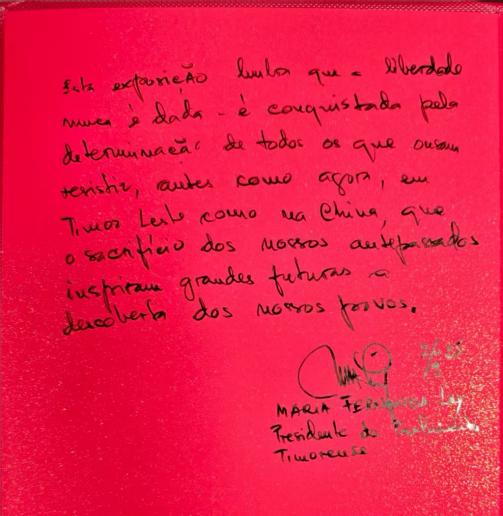 Esta exposição lembra que a liberdade
nunca é dada - é conquistada pela
determinação de todos os que ousam
resistir, antes como agora, em
Timor Leste como na China, que
o sacrifício dos nossos antepassados
inspiram grandes futuras a
descoberta dos nossos povos.
MARIA FERNANDA Lay
Presidente do Parlamento
Timorense